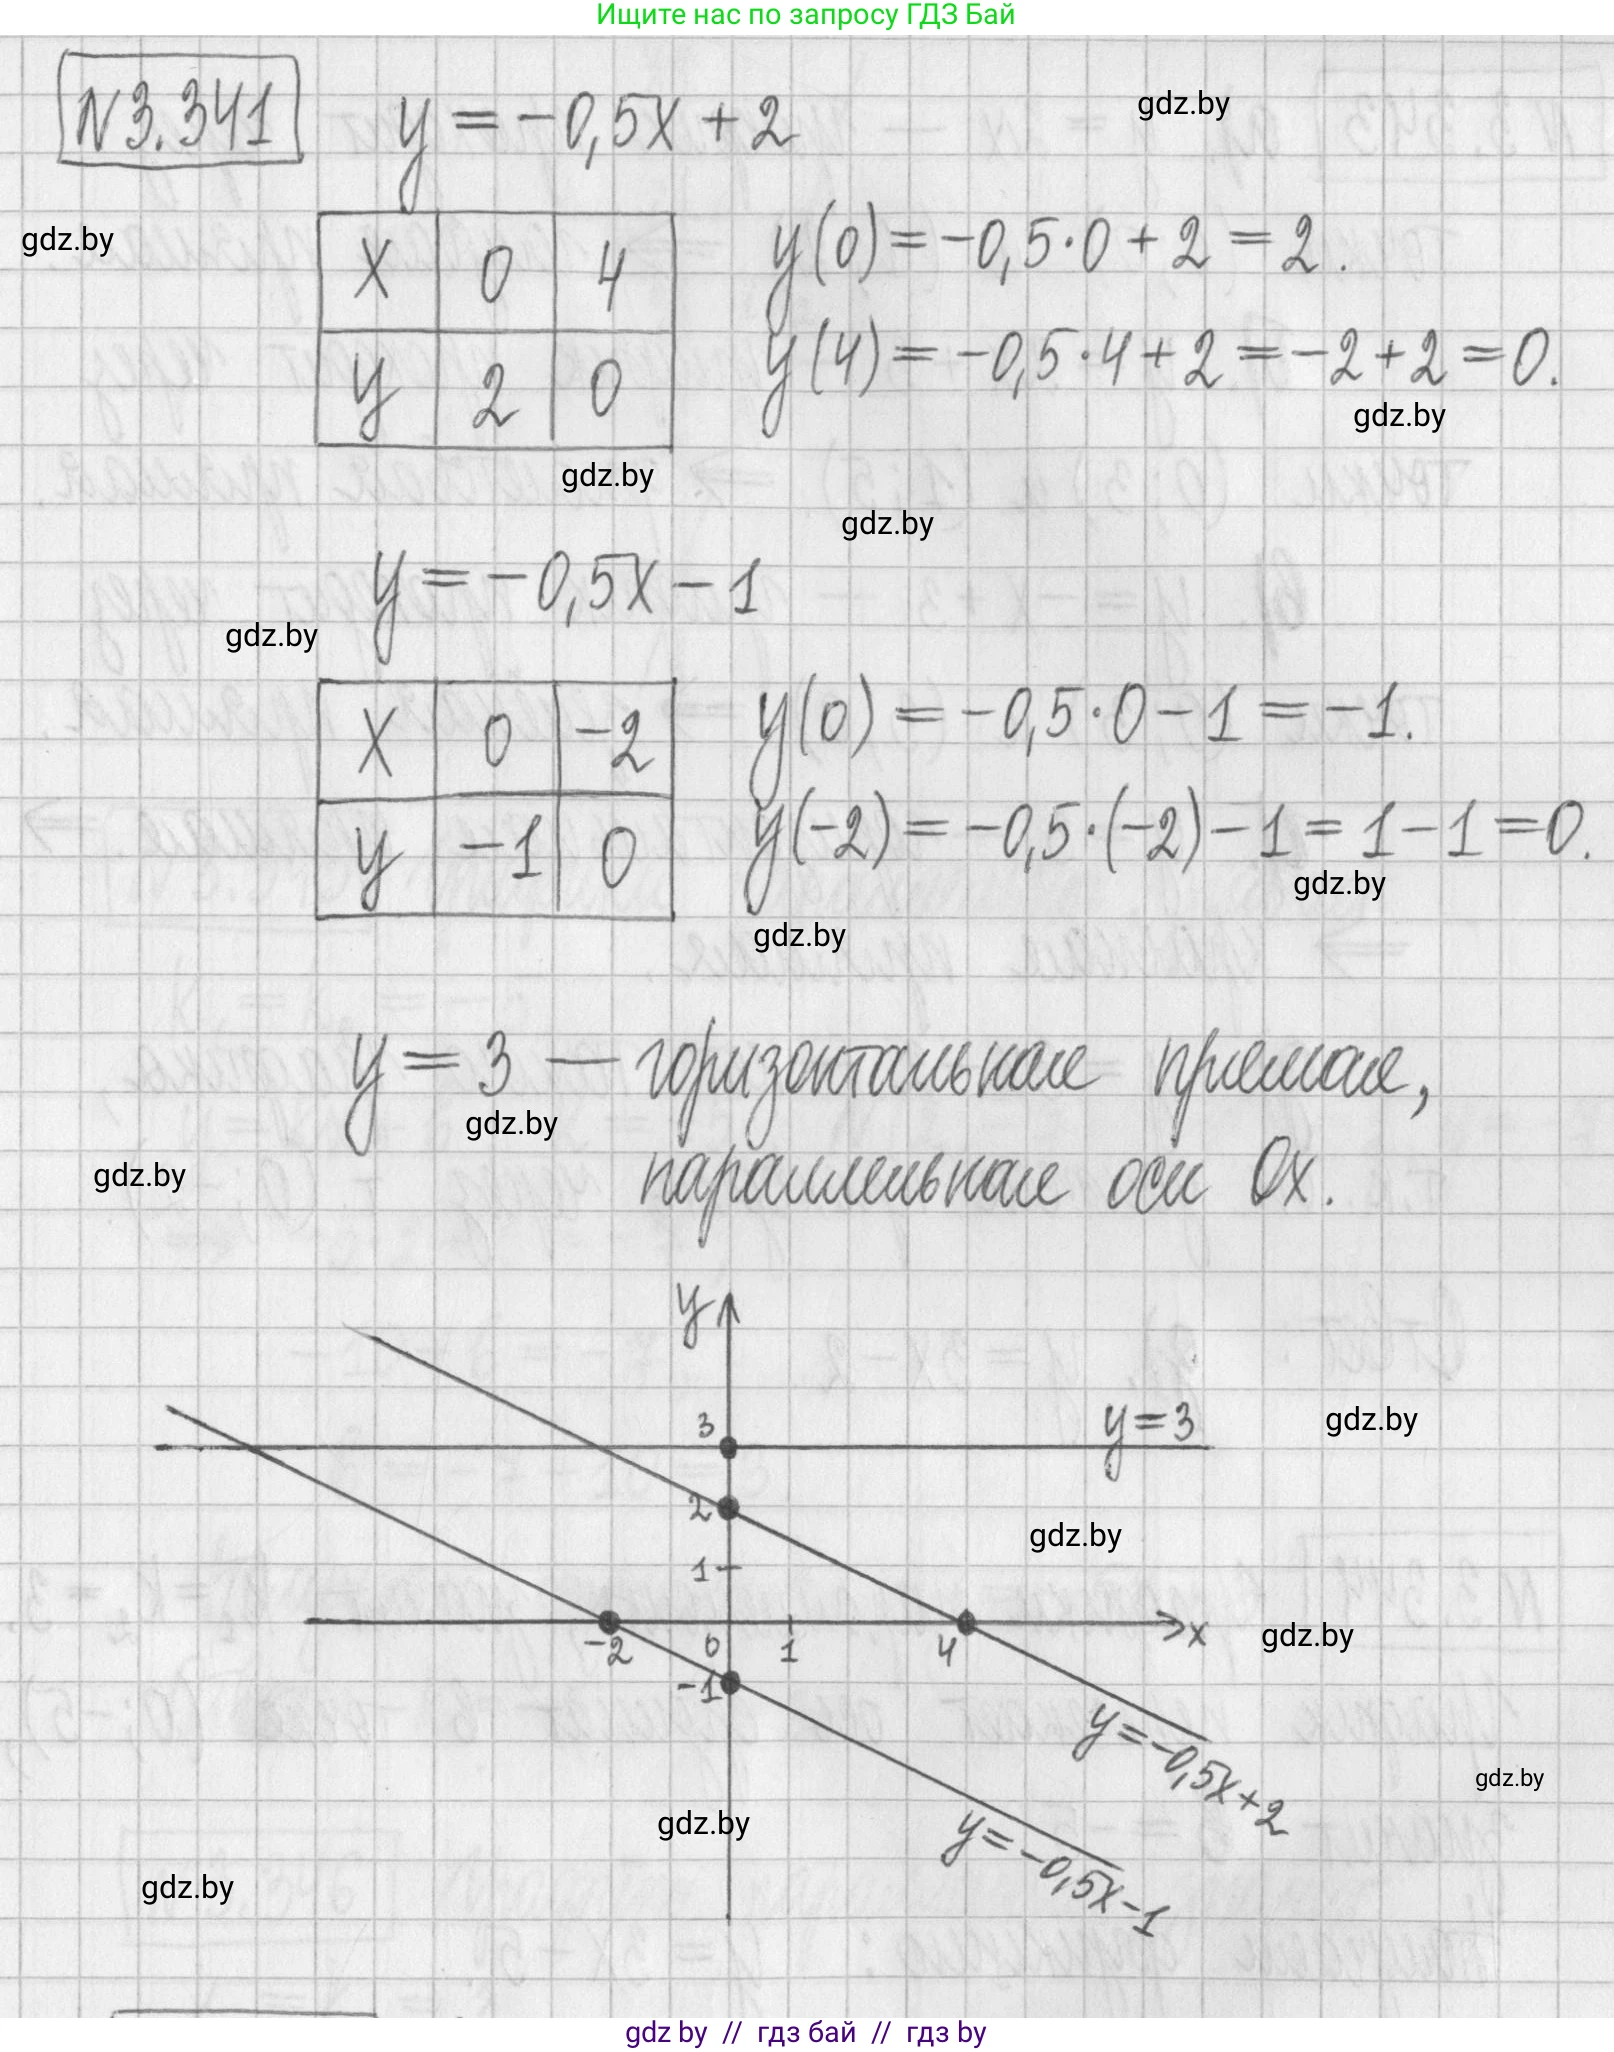 Ищите нас по запросу ГДЗ Бай
N3.341 y = -0,5x + 2
gdz.by
gdz.by
x 0 4
y 2 0
y(0) = -0,5·0 + 2 = 2.
y(4) = -0,5·4 + 2 = -2 + 2 = 0.
gdz.by
gdz.by
gdz.by
y = -0,5x - 1
gdz.by
x 0 -2
y -1 0
y(0) = -0,5·0 - 1 = -1.
y(-2) = -0,5·(-2) - 1 = 1 - 1 = 0.
gdz.by
gdz.by
y = 3 — горизонтальная прямая,
gdz.by
параллельная оси Ox.
gdz.by
y
3
y=3
gdz.by
2
gdz.by
1
-2 0 1 4 x
gdz.by
-1
y=-0,5x+2
gdz.by
gdz.by
y=-0,5x-1
gdz.by
gdz by // гдз бай // гдз by